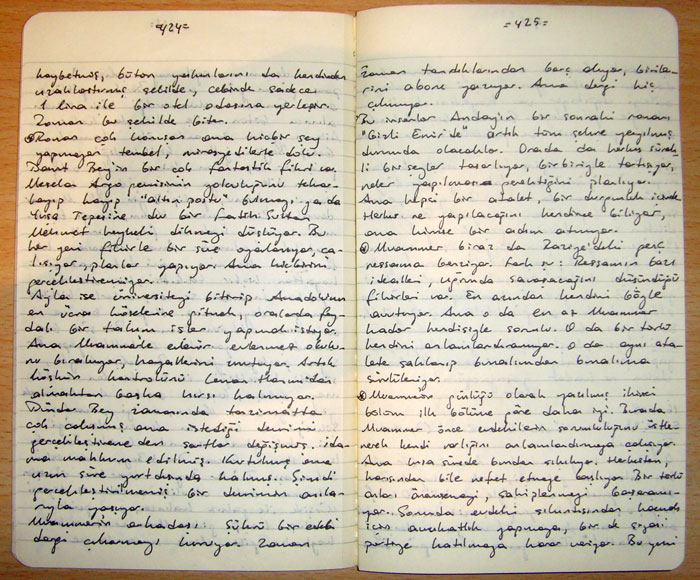 =424=
kaybetmiş, bütün yakınlarını da kendinden
uzaklaştırmış şekilde, cebinde sadece
1 lira ile bir otel odasına yerleşir.
Roman bu şekilde biter.
Roman çok konuşan ama hiçbir şey
yapmayan tembel, mirasyedilerle dolu.
Bey'in bir çok fantastik fikri var.
Mesela Argo gemisinin yolculuğunu tekrar-
layıp kayıp "altın postu" bulmayı ya da
Yuşa Tepesine dev bir Fatih Sultan
Mehmet heykeli dikmeyi düşlüyor. Bu
her yeni fikirle bir süre oyalanıyor, ça-
lışıyor, planlar yapıyor. Ama hiçbirini
gerçekleştiremiyor.
Ayla ise üniversiteyi bitirip Anadolunun
en ücra köşelerine gitmek, oralarda fay-
dalı bir takım işler yapmak istiyor.
Ama Muammerle evlenir evlenmez oku-
nu bırakıyor, hayallerini unutuyor. Artık
köşkün kontrolünü Hanımdan
almaktan başka hırsı kalmıyor.
Dündar Bey zamanında
çok çalışmış ama istediği devrimi
gerçekleştiremeden şartlar değişmiş. ida-
ma mahkum edilmiş. Kurtulmuş ama
uzun süre yurtdışında kalmış. Şimdi
gerçekleştirilmemiş bir devrimin anıla-
rıyla yaşıyor.
Muammerin arkadaşı Şükrü bir edebi
dergi çıkarmayı kuruyor. Zaman
=425=
zaman tanıdıklarından borç alıyor, birile-
rini abone yazıyor. Ama dergi hiç
çıkmıyor.
Bu insanlar Andayın bir sonraki romanı
"Gizli Emir'de" artık tüm şehre yayılmış
durumda olacaklar. Orada da herkes sürek-
li bir şeyler tasarlıyor, birbiriyle tartışıyor,
neler yapılması gerektiğini planlıyor.
Ama hepsi bir atalet, bir durgunluk içinde
Herkes ne yapılacağını kendince biliyor,
ama kimse bir adım atmıyor.
Muammer biraz da Raziye'deki
ressama benziyor. Fark şu: Ressamın bazı
idealleri, uğrunda savaşacağını düşündüğü
fikirleri var. En azından kendini böyle
avutuyor. Ama o da en az Muammer
kadar kendisiyle sorunlu. O da bir türlü
kendini anlamlandıramıyor. O da aynı ata-
lete saklanıp bunalımdan bunalıma
sürükleniyor.
Muammer günlüğü olarak yazılmış ikinci
bölüm ilk bölüme göre daha iyi. Burada
Muammer önce evdekilerin sorumluluğunu üstle-
nerek kendi varlığını anlamlandırmaya çalışıyor.
Ama kısa sürede bundan sıkılıyor. Herkesten,
karısından bile nefret etmeye başlıyor. Bir türlü
onları önemsemeyi, sahiplenmeyi başaramı-
yor. Sonunda evdeki sıkıntısından kaçmak
için avukatlık yapmaya, bir de siyasi
partiye katılmaya karar veriyor. Bu yeni